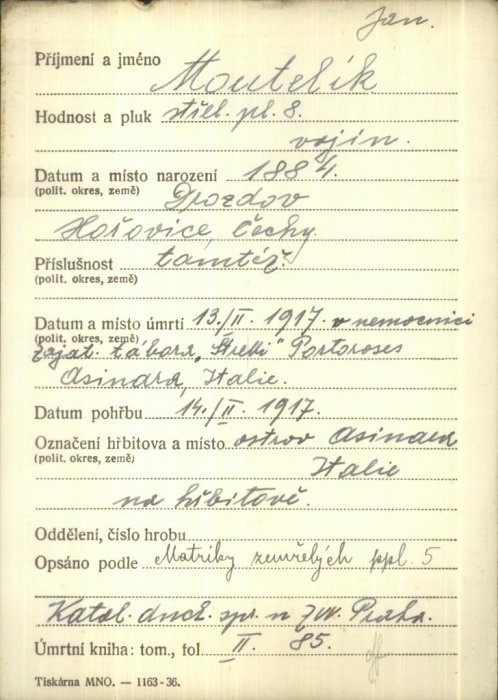 Jan.
Příjmení a jméno Moutelík
Hodnost a pluk střel. pl. 8.
vojín.
Datum a místo narození 1884.
(polit. okres, země) Drozdov
Hořovice, Čechy.
Příslušnost tamtéž.
(polit. okres, země)
Datum a místo úmrtí 13./II. 1917. v nemocnici
(polit. okres, země)
zajat. tábora „Stretti" Portoroses
Asinara, Italie.
Datum pohřbu 14./II. 1917.
Označení hřbitova a místo ostrov Asinara
(polit. okres, země)
Italie
na hřbitově.
Oddělení, číslo hrobu
Opsáno podle Matriky zemřelých ppl. 5
Katol. duch. spr. n ZVV. Praha.
Úmrtní kniha: tom., fol II. 85.
Tiskárna MNO. — 1163-36.